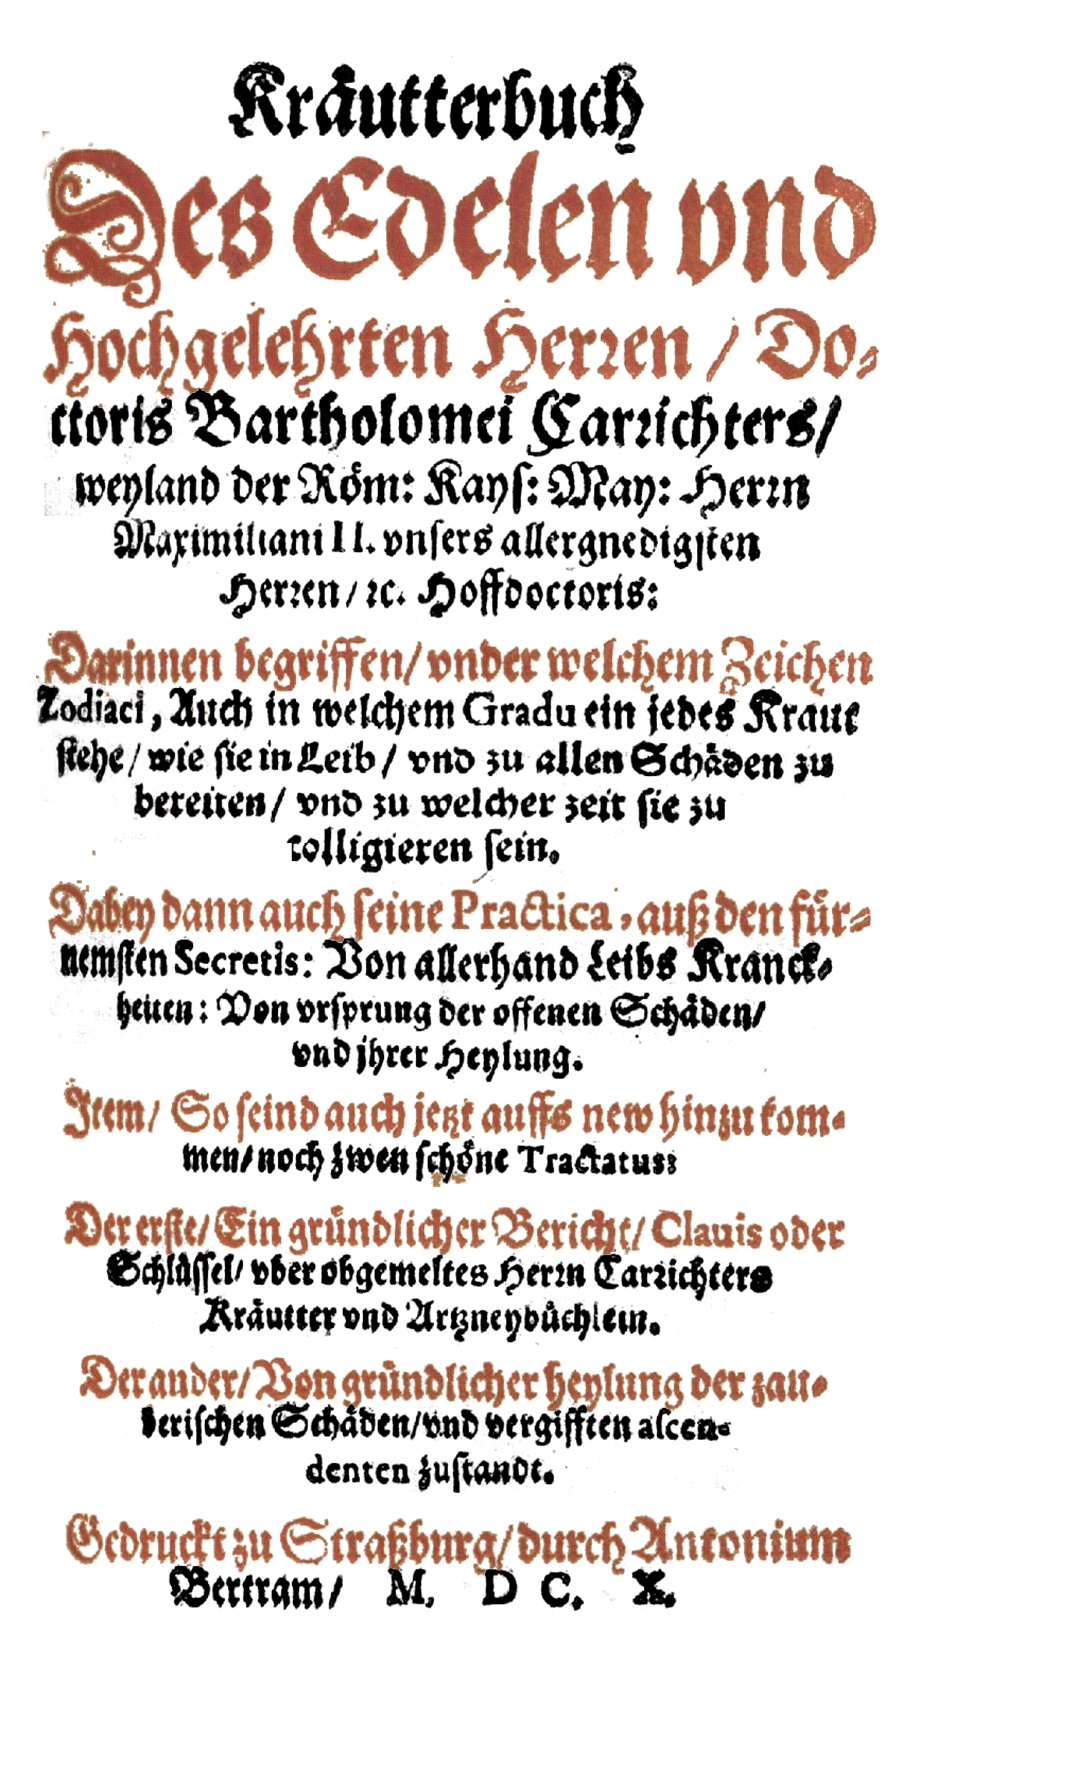 Kräutterbuch
Des Edelen vnd
Hochgelehrten Herꝛen / Do⸗
ctoris Bartholomei Carꝛichters/
weyland der Röm: Kayſ: May: Herꝛn
Maximiliani II. vnſers allergnedigſten
Herꝛen / ꝛc. Hoffdoctoris:
Darinnen begriffen/ vnder welchem Zeichen
Zodiaci, Auch in welchem Gradu ein jedes Kraut
ſtehe / wie ſie in Leib / vnd zu allen Schäden zu
bereiten / vnd zu welcher zeit ſie zu
colligieren ſein.
Dabey dann auch ſeine Practica, auß den für⸗
nemſten Secretis: Von allerhand Leibs Kranck⸗
heiten: Von vrſprung der offenen Schäden/
vnd jhrer Heylung.
Item/ So ſeind auch jetzt auffs new hinzu kom⸗
men/ noch zwen ſchöne Tractatus:
Der erſte/ Ein gründlicher Bericht/ Clauis oder
Schlüſſel/ vber obgemeltes Herꝛn Carꝛichters
Kräutter vnd Artzneybüchlein.
Der ander/ Von gründlicher heylung der zau⸗
berischen Schäden/ vnd vergifften aſcen⸗
denten zuſtandt.
Gedruckt zu Straßburg/ durch Antonium
Bertram/ M. D C. X.